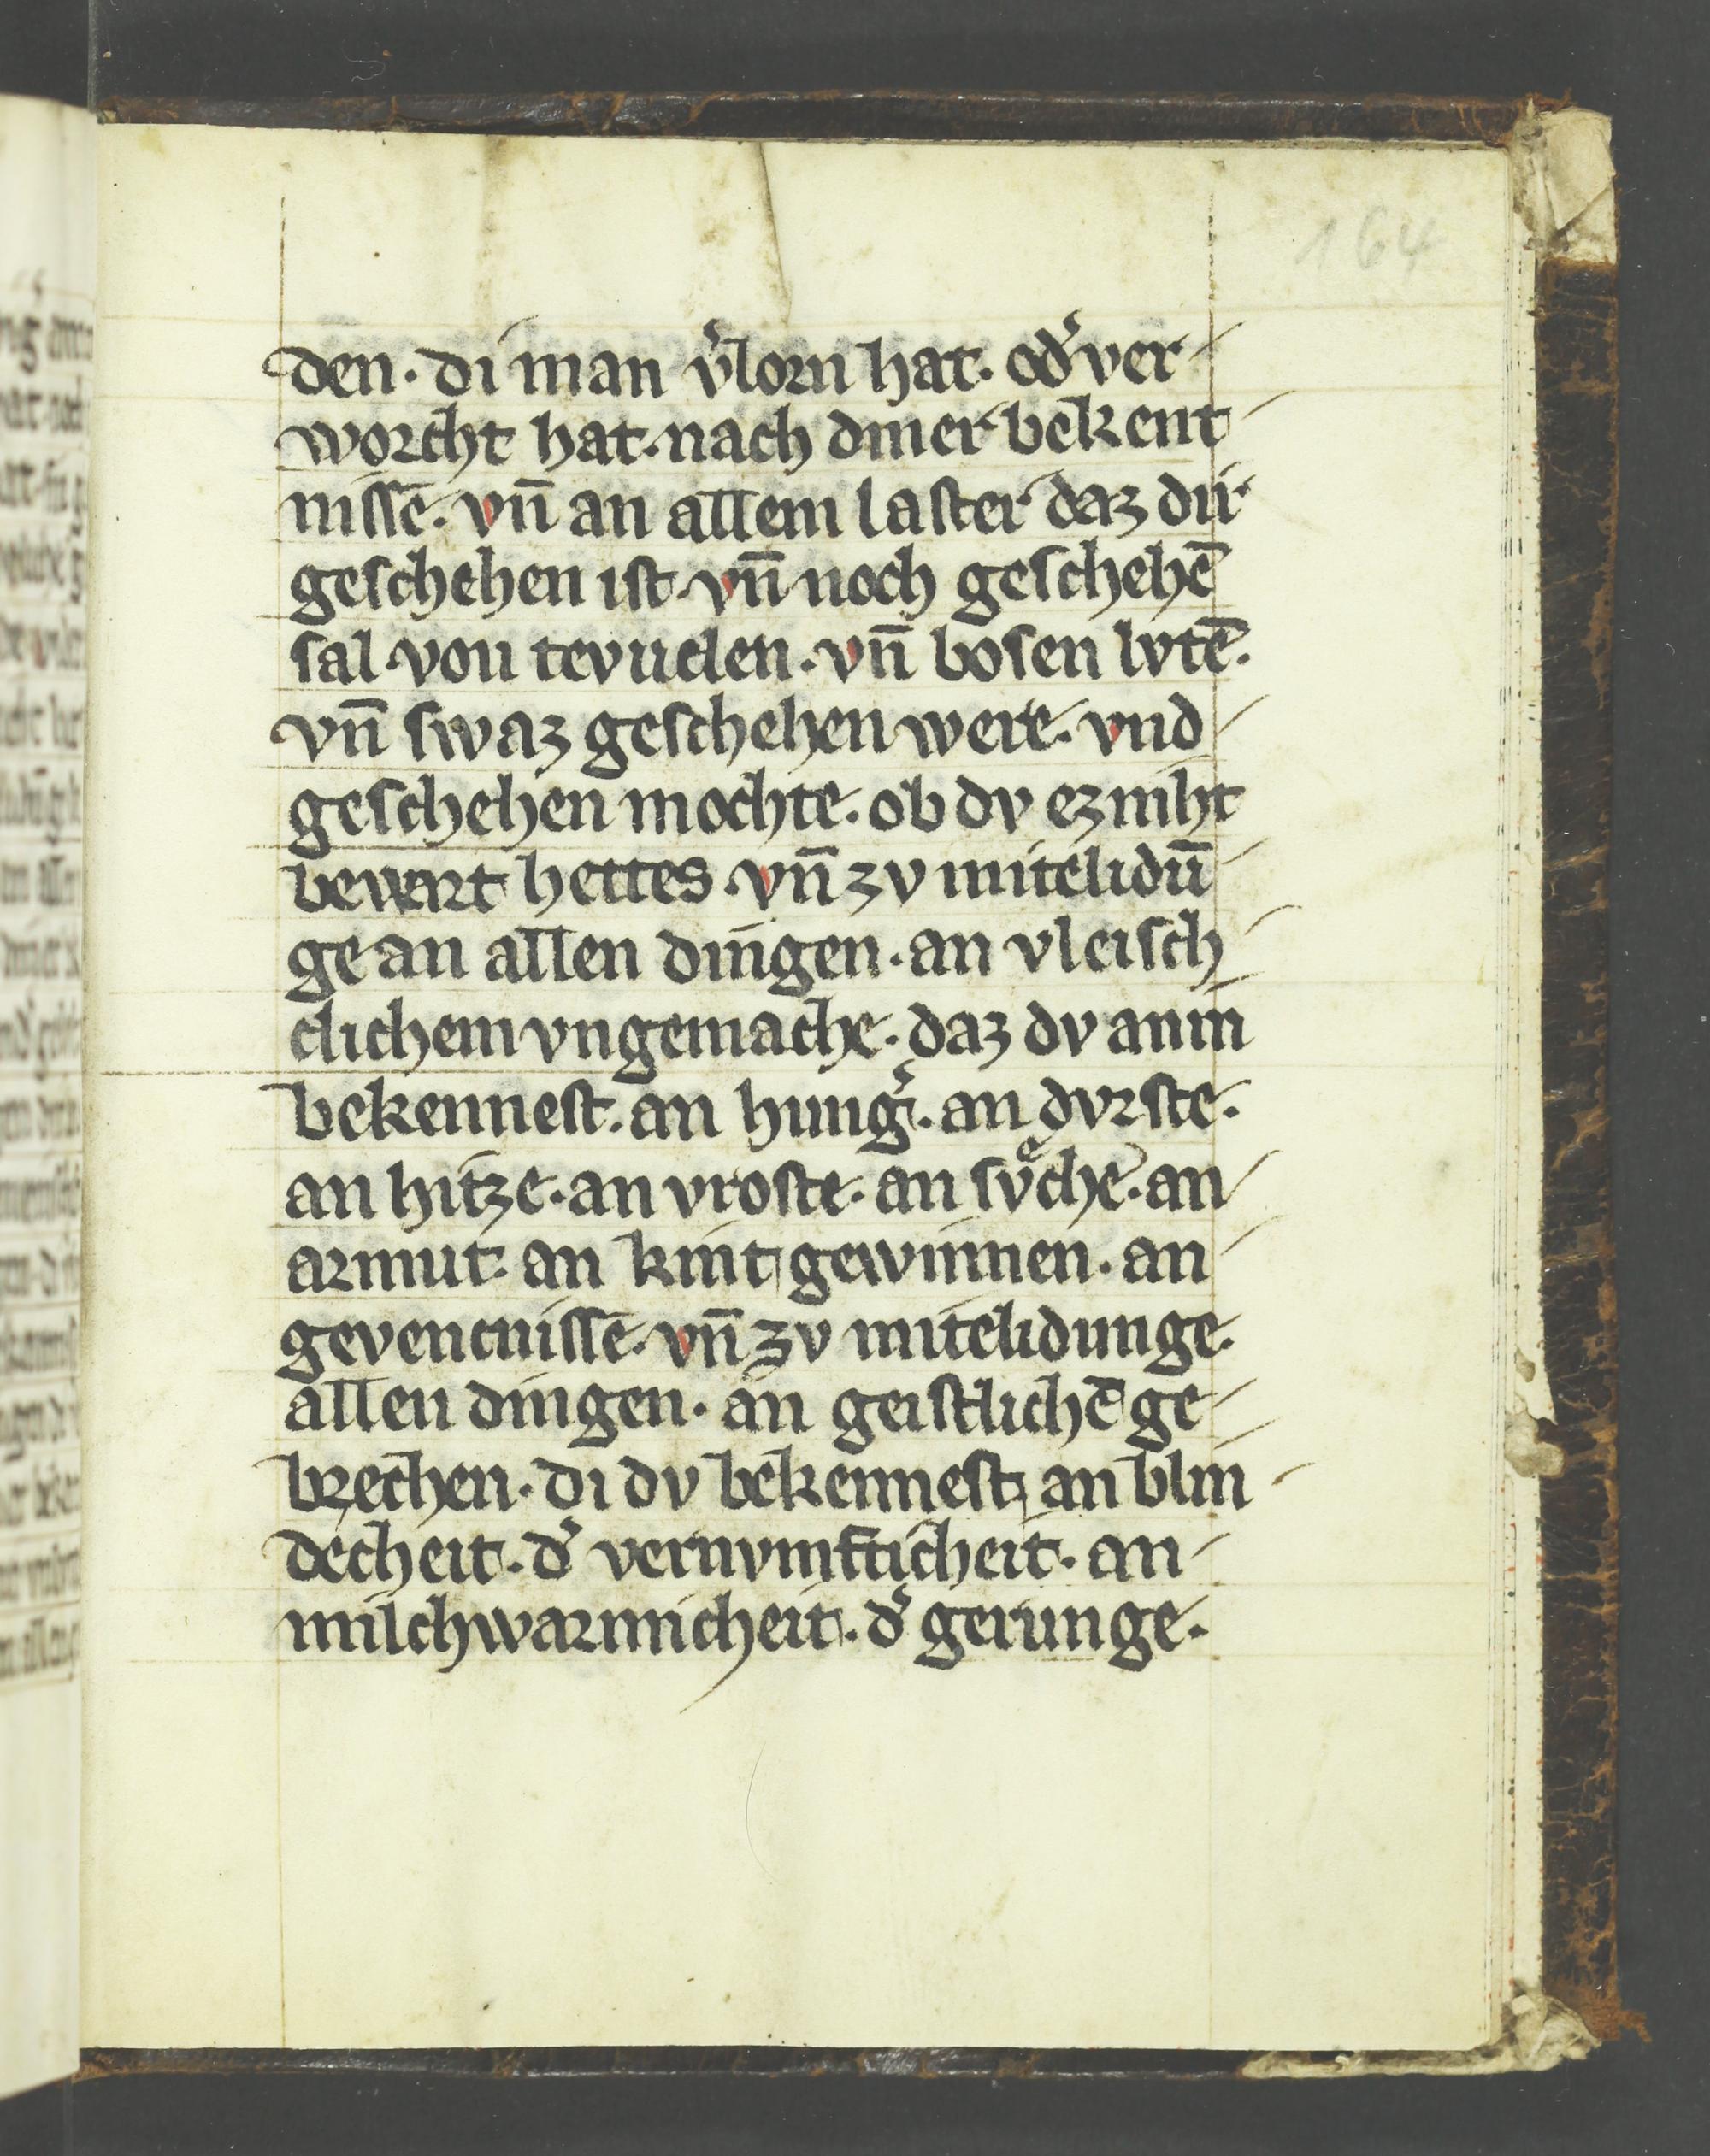 164
den · di man v͛lorn hat · od͛ ver-
worcht hat · nach diner bekent-
nisse · vn̄ an allem laster daz dir
geschehen ist · vn̄ noch geschehē
sal · von tevuelen · vn̄ bosen lvtē ·
vn̄ swaz geschehen were · vnd-
geschehen mochte · ob dv ez niht
bewart hettes · vn̄ zv mitelidū-
ge an allen dingen · an vleisch-
clichem vngemache · daz dv an in
bekennest · an hung͛ · an dvrste ·
an hitze · an vroste · an svͦche · an-
armut · an kint gewinnen · an-
gevencnisse · vn̄ zv mitelidunge ·
allen dingen · an geistlichē ge-
brechen · di dv bekennest · an blin-
decheit · d͛ vernvmfticheit · an-
milchwarmicheit · d͛ gerunge ·